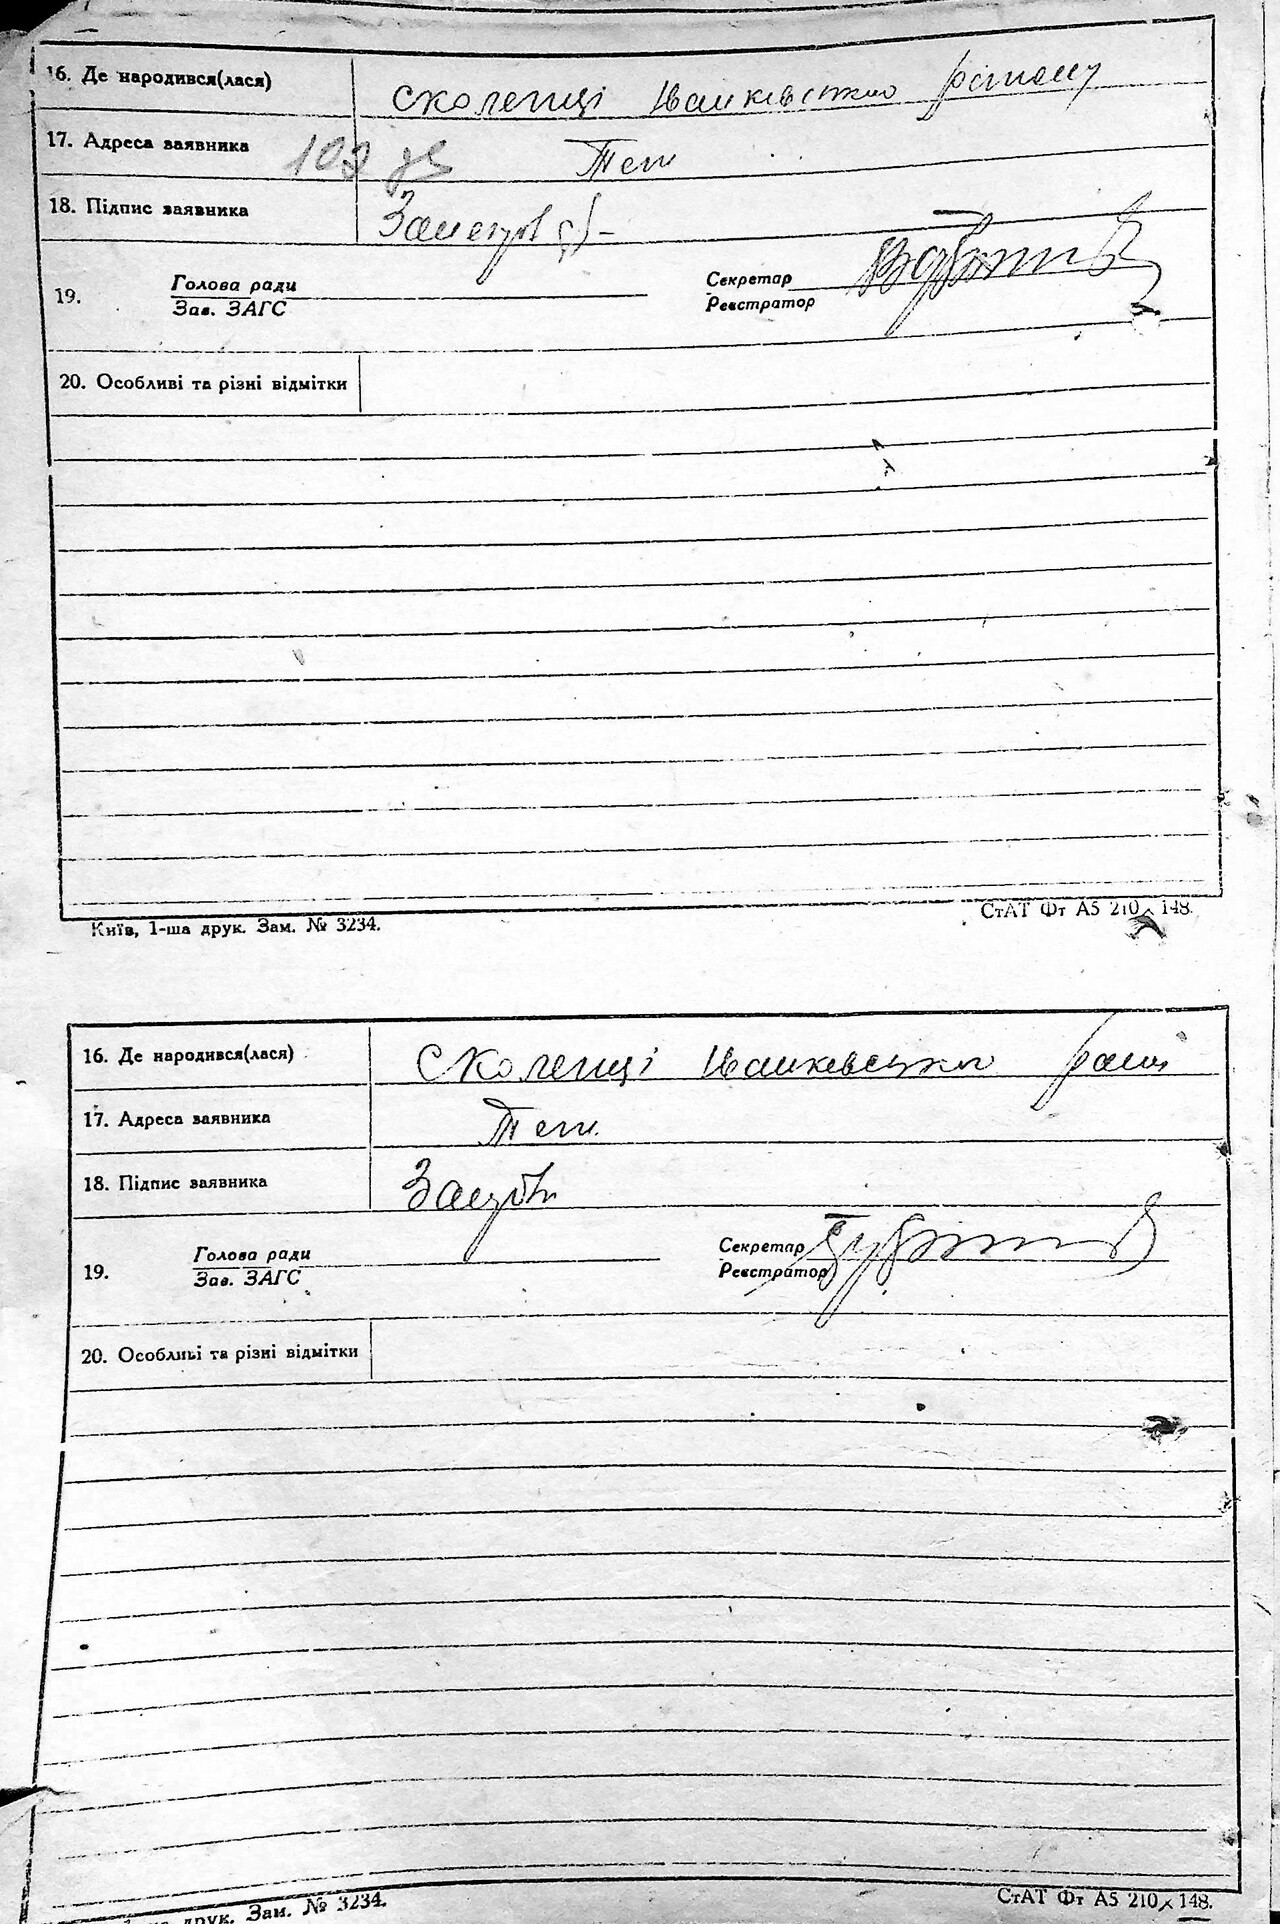 16. Де народився(лася) сколенці Іванківського району
17. Адреса заявника 102 Теж
18. Підпис заявника
19. Голова ради Секретар
Зав. ЗАГС Реєстратор
20. Особливі та різні відмітки
Київ, 1-ша друк. Зам. № 3234. СтАТ Фт А5 210×148.
16. Де народився(лася) Сколенці Іванківського
17. Адреса заявника Теж
18. Підпис заявника
19. Голова ради Секретар
Зав. ЗАГС Реєстратор
20. Особливі та різні відмітки
друк. Зам. № 3234. СтАТ Фт А5 210×148.